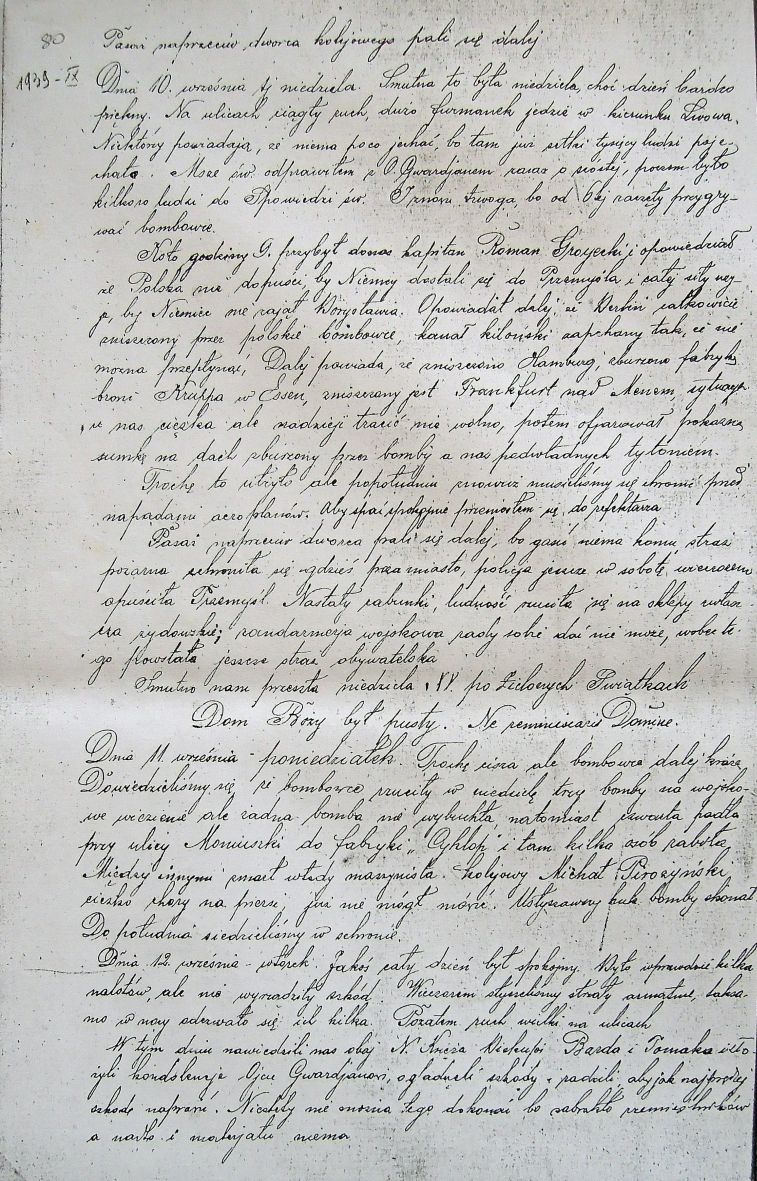 80
Pasaż naprzeciw dworca kolejowego pali się dalej
1939 - IX
Dnia 10. września tj niedziela. Smutna to była niedziela, choć dzień bardzo
piękny. Na ulicach ciągły ruch, dużo furmanek jedzie w kierunku Lwowa.
Niektórzy powiadają, że niema poco jechać, bo tam już setki tysięcy ludzi poje-
chało. Msze św. odprawiłem z O. Gwardjanem zaraz o szóstej, poczem było
kilkoro ludzi do Spowiedzi św. I znowu trwoga, bo od 6tej zaczęły przygry-
wać bombowce.
Koło godziny 9. przybył donas kapitan Roman Grozecki i opowiedział
że Polska nie dopuści, by Niemcy dostali się do Przemyśla i całej siły uży-
je, by Niemiec nie zajął Borysławia. Opowiadał dalej, że Berlin całkowicie
zniszczony przez polskie bombowce, kanał kiloński zapchany tak, że nie
można przepłynąć, Dalej powiada, że zniszczono Hamburg, zburzono fabrykę
broni Kruppa w Essen, zniszczony jest Frankfurt nad Menem, sytuacja
u nas ciężka ale nadzieji tracić nie wolno, potem ofjarował pokaźną
sumkę na dach zburzony przez bomby a nas podwładnych tytoniem.
Trochę to ulżyło ale popołudniu znowuż musieliśmy się chronić przed
napadami aeroplanów. Aby spać spokojnie przeniosłem się do refektarza
Pasaż naprzeciw dworca pali się dalej, bo gasić niema komu, straż
pożarna schroniła się gdzieś poza miasto, policja jeszcze w sobotę wieczorem
opuściła Przemyśl. Nastały rabunki, ludność rzuciła się na sklepy zwłasz-
cza żydowskie; żandarmerja wojskowa rady sobie dać nie może, wobec te-
go powstała jeszcze straż obywatelska
Smutno nam przeszła niedziela XV. po Zielonych Świątkach
Dom Boży był pusty. Ne reminiscaris Domine.
Dnia 11. września - poniedziałek. Trochę cisza ale bombowce dalej krążą
Dowiedzieliśmy się, że bombowce rzuciły w niedzielę trzy bomby na wojsko-
we więzienie ale żadna bomba nie wybuchła, natomiast czwarta padła
przy ulicy Moniuszki do fabryki "Cyklop" i tam kilka osób zabiła
Między innymi zmarł wtedy maszynista kolejowy Michał Pirożyński
ciężko chory na piersi, już nie mógł mówić. Usłyszawszy huk bomby skonał
Do południa siedzieliśmy w schronie.
Dnia 12. września - wtorek. Jakoś cały dzień był spokojny. Było wprawdzie kilka
nalotów, ale nie wyrządziły szkód. Wieczorem słyszeliśmy strzały armatnie, taksa-
mo w nocy oderwało się ich kilka. Pozatem ruch wielki na ulicach
W tym dniu nawiedzili nas obaj N. Księża Biskupi Barda i Tomaka i zło-
żyli kondolencje Ojcu Gwardjanowi, oglądnęli szkody i radzili, aby jak najprędzej
szkodę naprawić. Niestety nie można tego dokonać bo zabrakło rzemieślników
a nadto i materjału niema